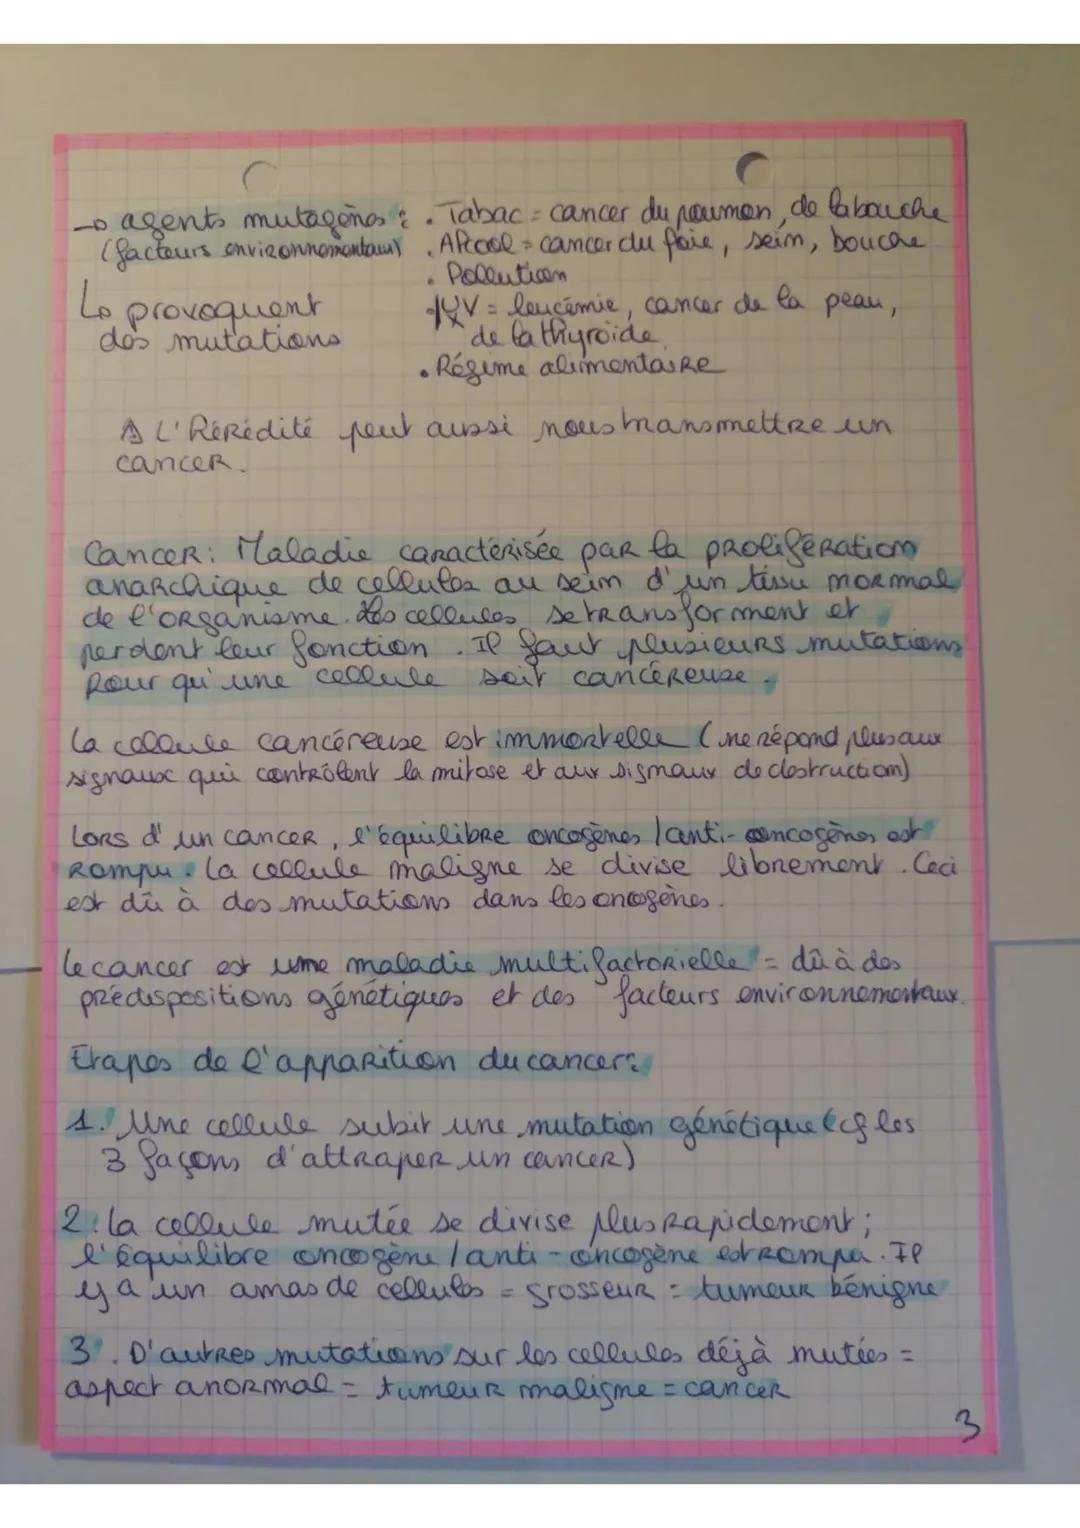 → agents mutagènes : . Tabac = cancer du poumon, de la bouche
(facteurs environnementaux) . Alcool = cancer du foie, sein, bouche
. Pollution
↳ provoquent
des mutations
UV = leucémie, cancer de la peau,
de la thyroïde.
. Régime alimentaire
⚠ L'hérédité peut aussi nous transmettre un
cancer.
Cancer : Maladie caractérisée par la prolifération
anarchique de cellules au sein d'un tissu normal
de l'organisme. Les cellules se transforment et
perdent leur fonction. Il faut plusieurs mutations
pour qu'une cellule soit cancéreuse.
La cellule cancéreuse est immortelle (ne répond plus aux
signaux qui contrôlent la mitose et aux signaux de destruction)
Lors d'un cancer, l'équilibre oncogènes / anti-oncogènes est
rompu. La cellule maligne se divise librement. Ceci
est dû à des mutations dans les oncogènes.
Le cancer est une maladie multifactorielle = dû à des
prédispositions génétiques et des facteurs environnementaux.
Etapes de l'apparition du cancer :
1. Une cellule subit une mutation génétique (cf les
3 façons d'attraper un cancer)
2. La cellule mutée se divise plus rapidement ;
l'équilibre oncogène / anti-oncogène est rompu. Il
y a un amas de cellules = grosseur = tumeur bénigne
3. D'autres mutations sur les cellules déjà mutées =
aspect anormal = tumeur maligne = cancer
3